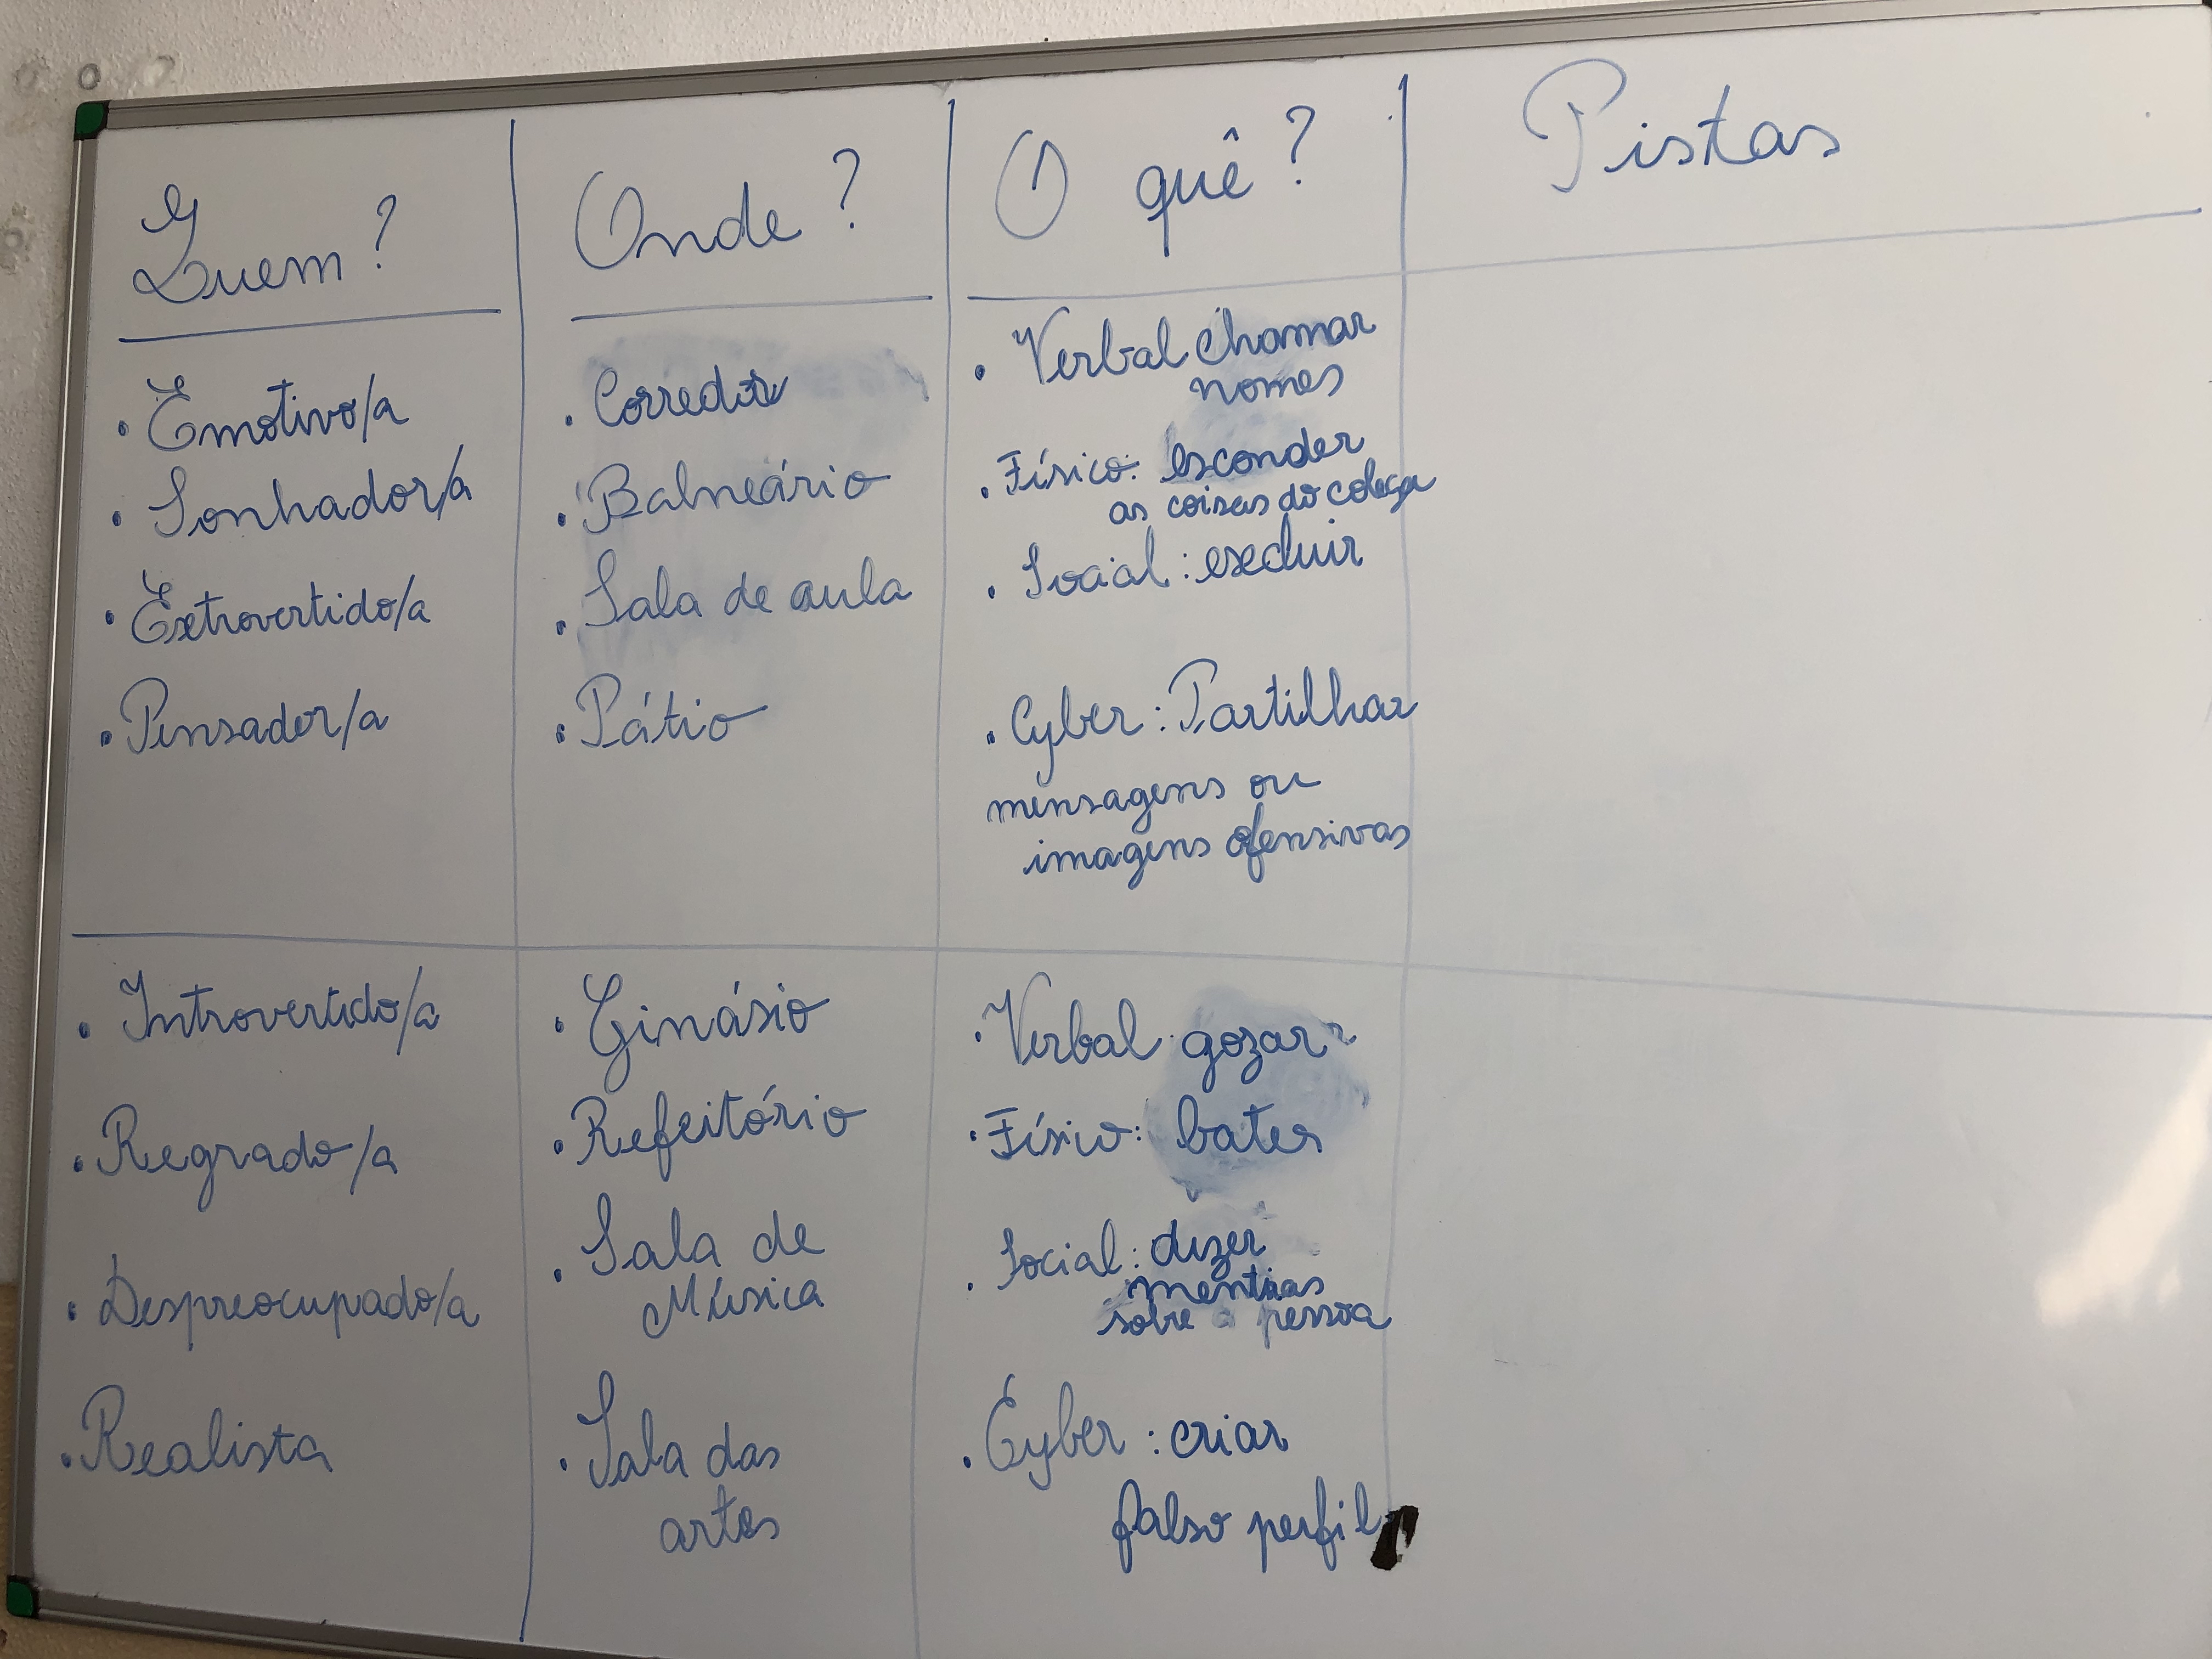 Quem?
Onde?
O quê?
Pistas
• Emotivo/a
• Sonhador/a
• Extrovertido/a
• Pensador/a
• Corredor
• Balneário
• Sala de aula
• Pátio
• Verbal chamar
nomes
• Físico: esconder
as coisas do colega
• Social: excluir
• Cyber: Partilhar
mensagens ou
imagens ofensivas
• Introvertido/a
• Regrado/a
• Despreocupado/a
• Realista
• Ginásio
• Refeitório
• Sala de
Música
• Sala das
artes
• Verbal gozar
• Físico: bater
• Social: dizer
mentiras
sobre a pessoa
• Cyber: criar
falso perfil